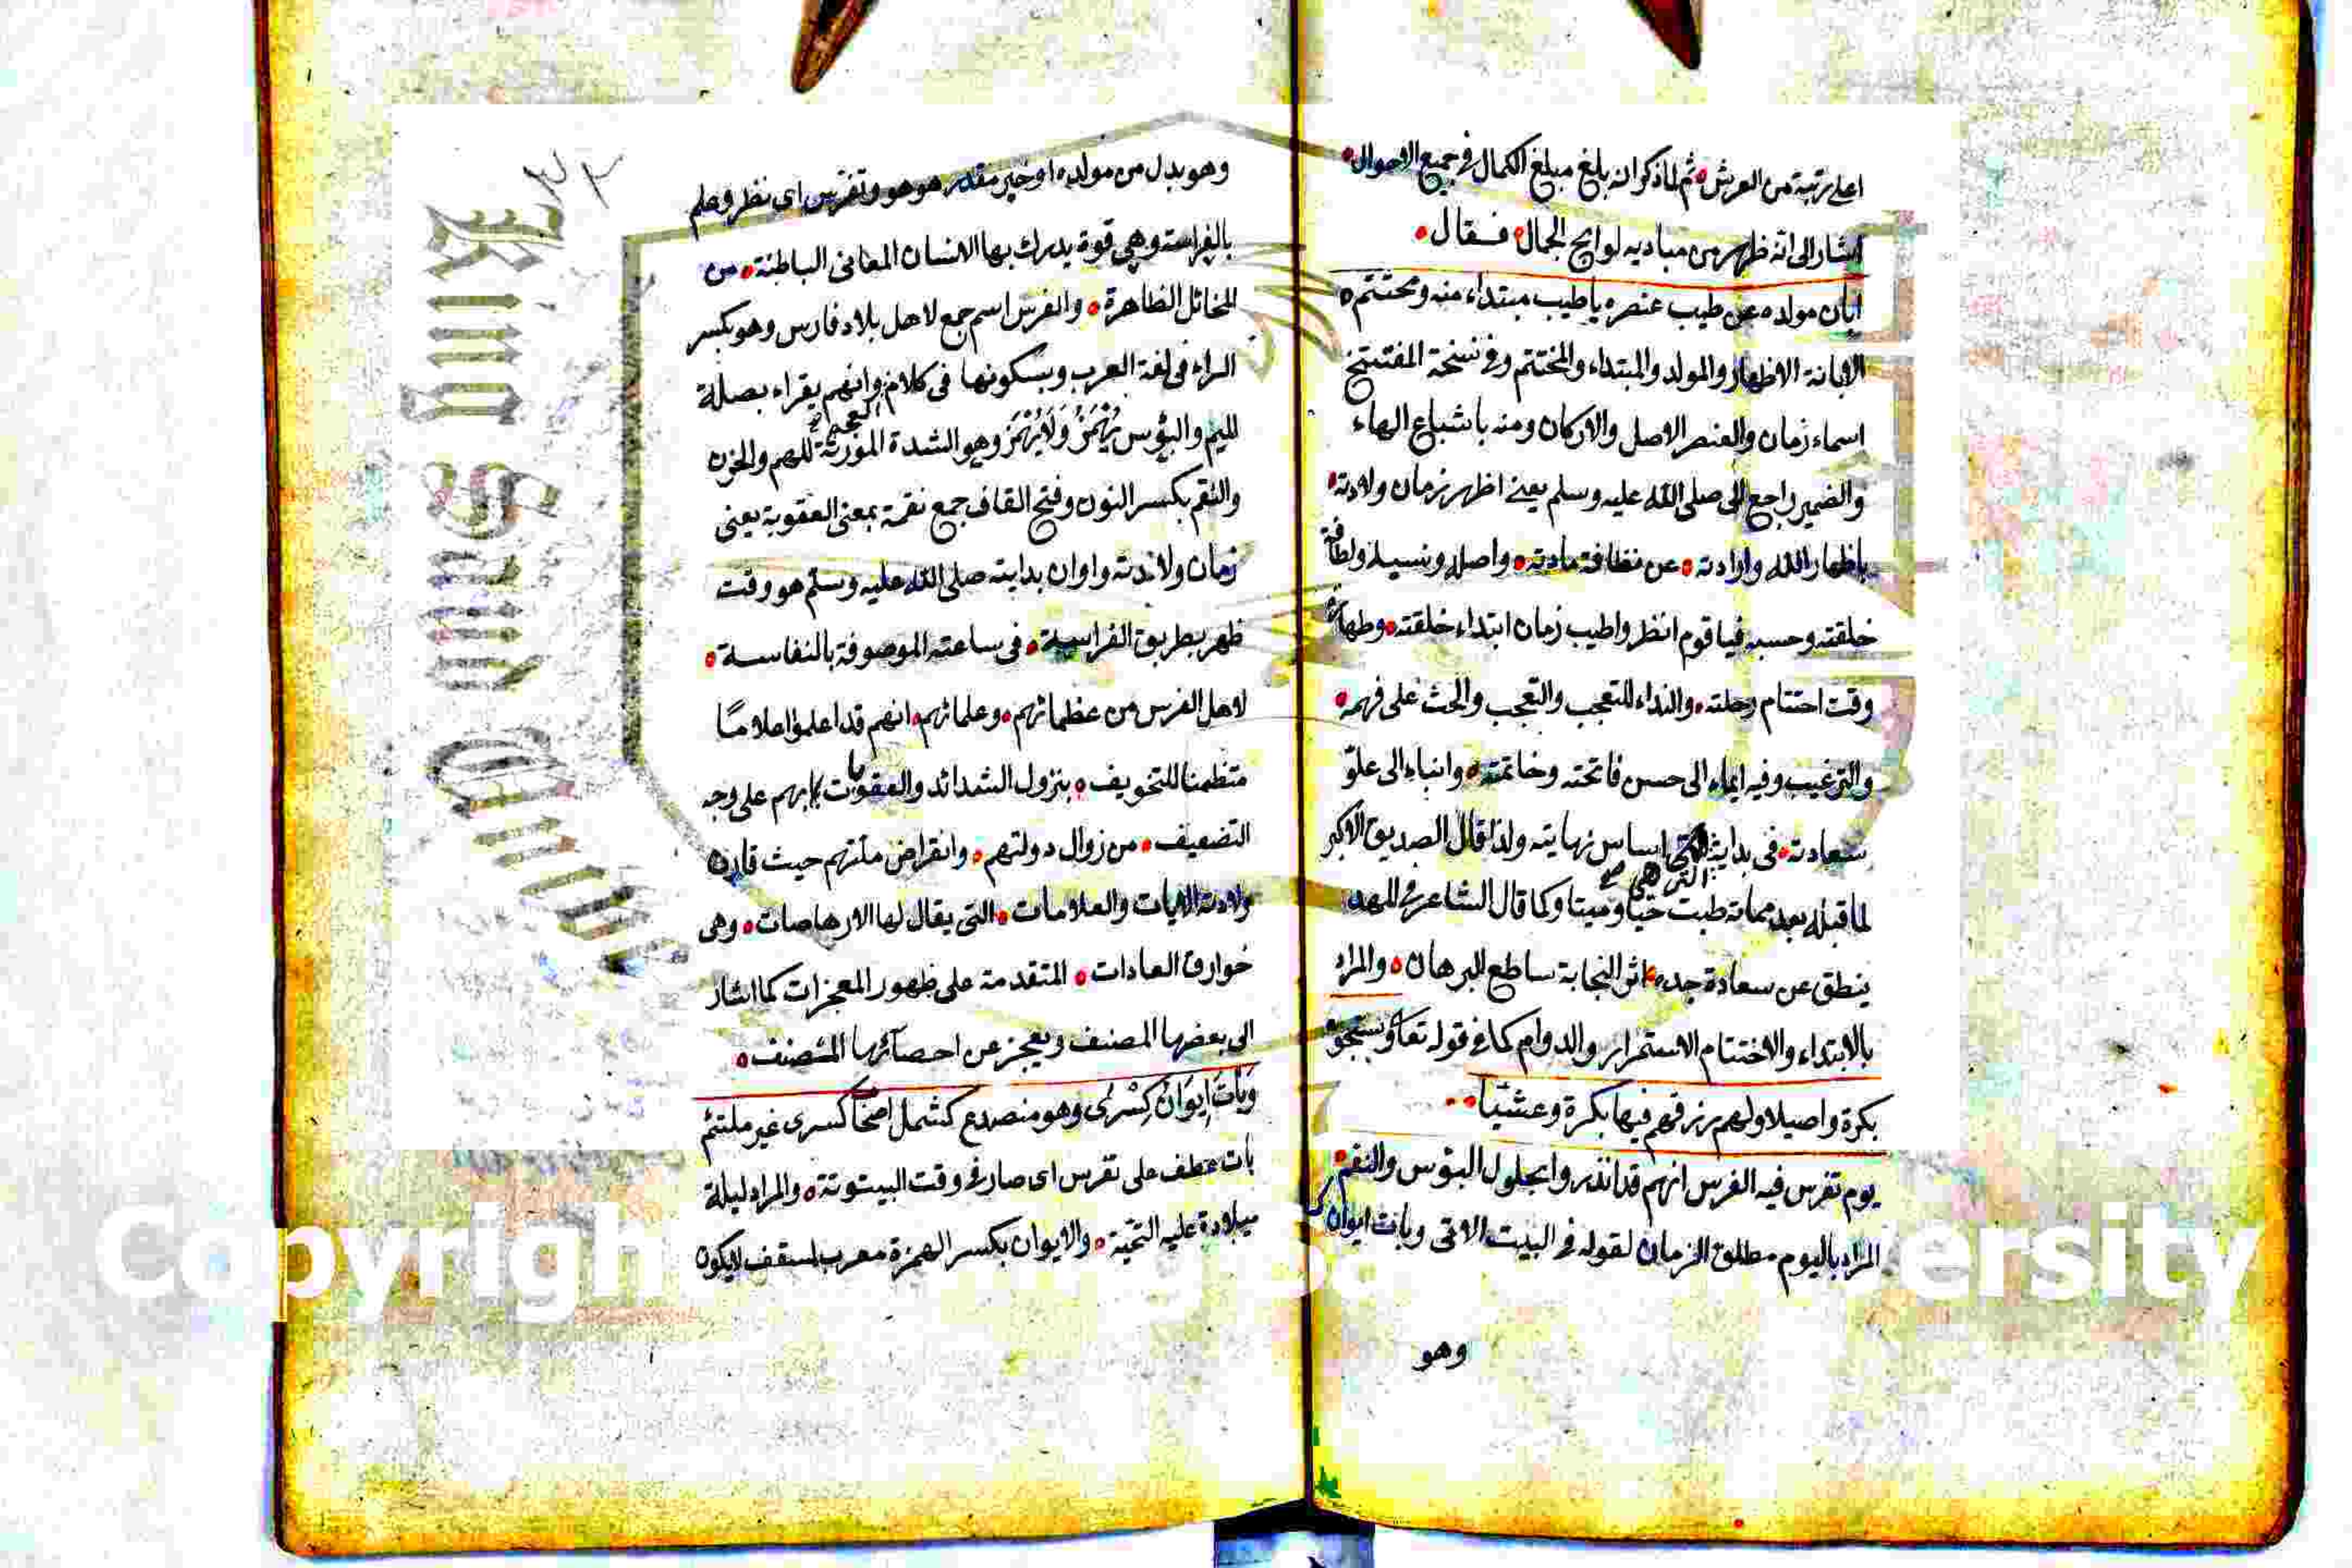 اعلى رتبة من العرش ثم لما ذكر انه بلغ مبلغ الكمال في جميع الاحوال
اشار الى انه ظهر من مباديه لوايح الجمال فقال
ابان مولده عن طيب عنصره ياطيب مبتداء منه ومختتم
الابانة الاظهار والمولد والمبتداء والمختتم وفي نسخة المفتتح
اسماء زمان والعنصر الاصل والاركان ومنه باشباع الهاء
والضمير راجع الى صلى الله عليه وسلم يعني اظهر زمان ولادته
باظهار الله وارادته عن نظافة مادته واصله ونسبه ولطافة
خلقته وحسبه فيا قوم انظروا طيب زمان ابتداء خلقته وطهارة
وقت اختتام رحلته والنداء للتعجب والتعجب والحث على فهمه
والترغيب وفيه ايماء الى حسن فاتحته وخاتمته وانباء الى علو
سعادته في بدايته التي هي اساس نهايته ولذا قال الصديق الاكبر
لما قبله بعد مماته طبت حيا وميتا وكما قال الشاعر في المهد
ينطق عن سعادة جده اثر النجابة ساطع البرهان والمراد
بالابتداء والاختتام الاستمرار والدوام كما في قوله تعا وسبحوه
بكرة واصيلا ولهم رزقهم فيها بكرة وعشيا
يوم تفرس فيه الفرس انهم قد انذروا بحلول البؤس والنقم
المراد باليوم مطلق الزمان لقوله في البيت الاتى وبات ايوان كسرى
وهو
٣٢
وهو بدل من مولده او خبر مقدر هو هو وتفرس اى نظر وعلم
بالفراسة وهي قوة يدرك بها الانسان المعانى الباطنة من
المخائل الظاهرة والفرس اسم جمع لاهل بلاد فارس وهو بكسر
الراء في لغة العرب وبسكونها في كلام العجم وانهم يقراء بصلة
للميم والبؤس يُهْمَزُ وَلَا يُهْمَزُ وهو الشدة المورثة للهم والحزن
والنقم بكسر النون وفتح القاف جمع نقمة بمعنى العقوبة يعنى
زمان ولادته واوان بدايته صلى الله عليه وسلم هو وقت
ظهر بطريق الفراسة في ساعته الموصوفة بالنفاسة
لاهل الفرس من عظمائهم وعلمائهم انهم قد اعلموا اعلاما
متظمنا للتخويف بنزول الشدائد والعقوبات بهم على وجه
التضعيف من زوال دولتهم وانقراض ملتهم حيث قارن
ولادته الايات والعلامات التى يقال لها الارهاصات وهى
خوارق العادات المتقدمة على ظهور المعجزات كما اشار
الى بعضها المصنف ويعجز عن احصائها المصنف
وَبَاتَ اِيوَانُ كِسْرٰى وهو منصدع كشمل اصحاب كسرى غير ملتئم
بات عطف على تفرس اى صار في وقت البيتوتة والمراد ليلة
ميلادة عليه التحية والايوان بكسر الهمزة معرب لسقف لايكون
King Saud Univ
Copyrigh
ersity